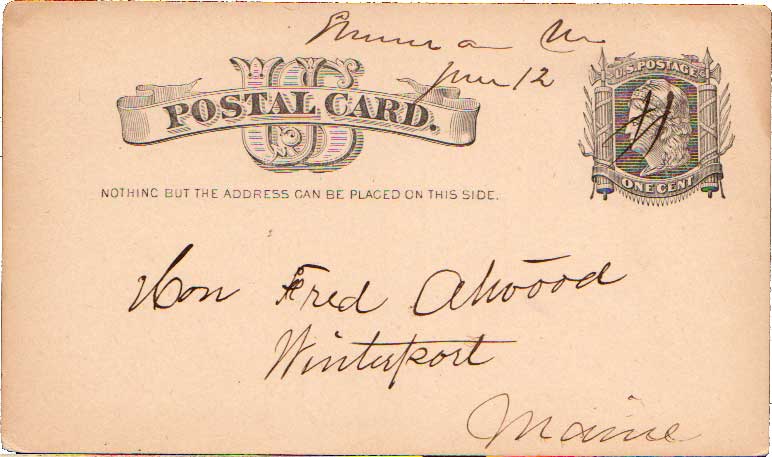 June 12
U.S. POSTAGE
POSTAL CARD.
NOTHING BUT THE ADDRESS CAN BE PLACED ON THIS SIDE.
ONE CENT
Hon Fred Atwood
Winterport
Maine